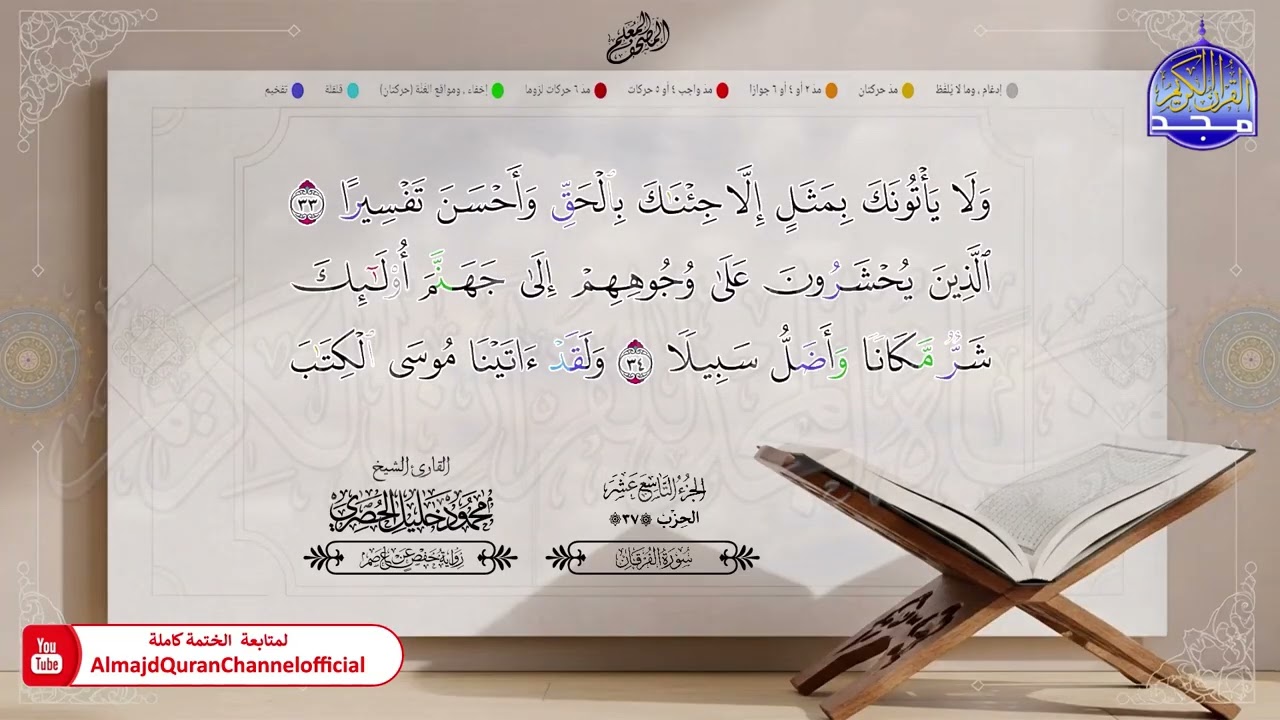 المصحف المعلم
القرآن الكريم
مجد
إدغام ، وما لا يُلفَظ
مد حركتان
مد ٢ أو ٤ أو ٦ جوازا
مد واجب ٤ أو ٥ حركات
مد ٦ حركات لزوما
إخفاء ، ومواقع الغُنَّة (حركتان)
قلقلة
تفخيم
وَلَا يَأْتُونَكَ بِمَثَلٍ إِلَّا جِئْنَـٰكَ بِٱلْحَقِّ وَأَحْسَنَ تَفْسِيرًا ٣٣
ٱلَّذِينَ يُحْشَرُونَ عَلَىٰ وُجُوهِهِمْ إِلَىٰ جَهَنَّمَ أُو۟لَـٰٓئِكَ
شَرٌّ مَّكَانًا وَأَضَلُّ سَبِيلًا ٣٤ وَلَقَدْ ءَاتَيْنَا مُوسَى ٱلْكِتَـٰبَ
الجزء التاسع عشر
الحزب ٣٧
سورة الفرقان
القارئ الشيخ
محمود خليل الحصري
رواية حفص عن عاصم
You
Tube
لمتابعة الختمة كاملة
AlmajdQuranChannelofficial